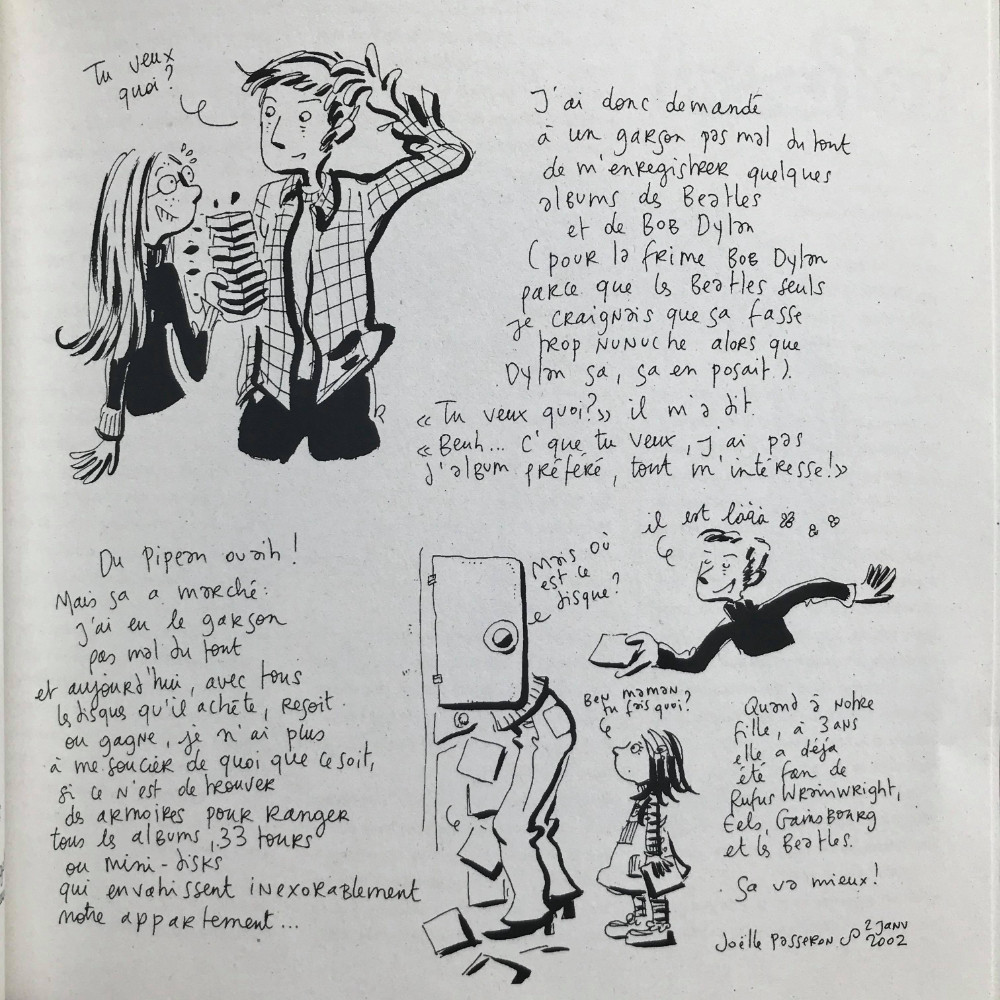 Tu veux
quoi?
J'ai donc demandé
à un garçon pas mal du tout
de m'enregistrer quelques
albums des Beatles
et de Bob Dylan
(pour la frime Bob Dylan
parce que les Beatles seuls
je craignais que ça fasse
trop nunuche alors que
Dylan ça, ça en posait).
«Tu veux quoi?» il m'a dit.
«Beuh... C'que tu veux, j'ai pas
d'album préféré, tout m'intéresse!»
Du Pipeau ouaih!
Mais ça a marché:
j'ai eu le garçon
pas mal du tout
et aujourd'hui, avec tous
les disques qu'il achète, reçoit
ou gagne, je n'ai plus
à me soucier de quoi que ce soit,
si ce n'est de trouver
des armoires pour ranger
tous les albums, 33 tours
ou mini-disks
qui envahissent inexorablement
notre appartement...
Mais où
est ce
disque?
il est lààà
Ben maman
tu fais quoi?
Quand à notre
fille, à 3 ans
elle a déjà
été fan de
Rufus Wrainwright,
Eels, Gainsbourg
et les Beatles.
Ça va mieux!
Joëlle Passeron
2 janv
2002